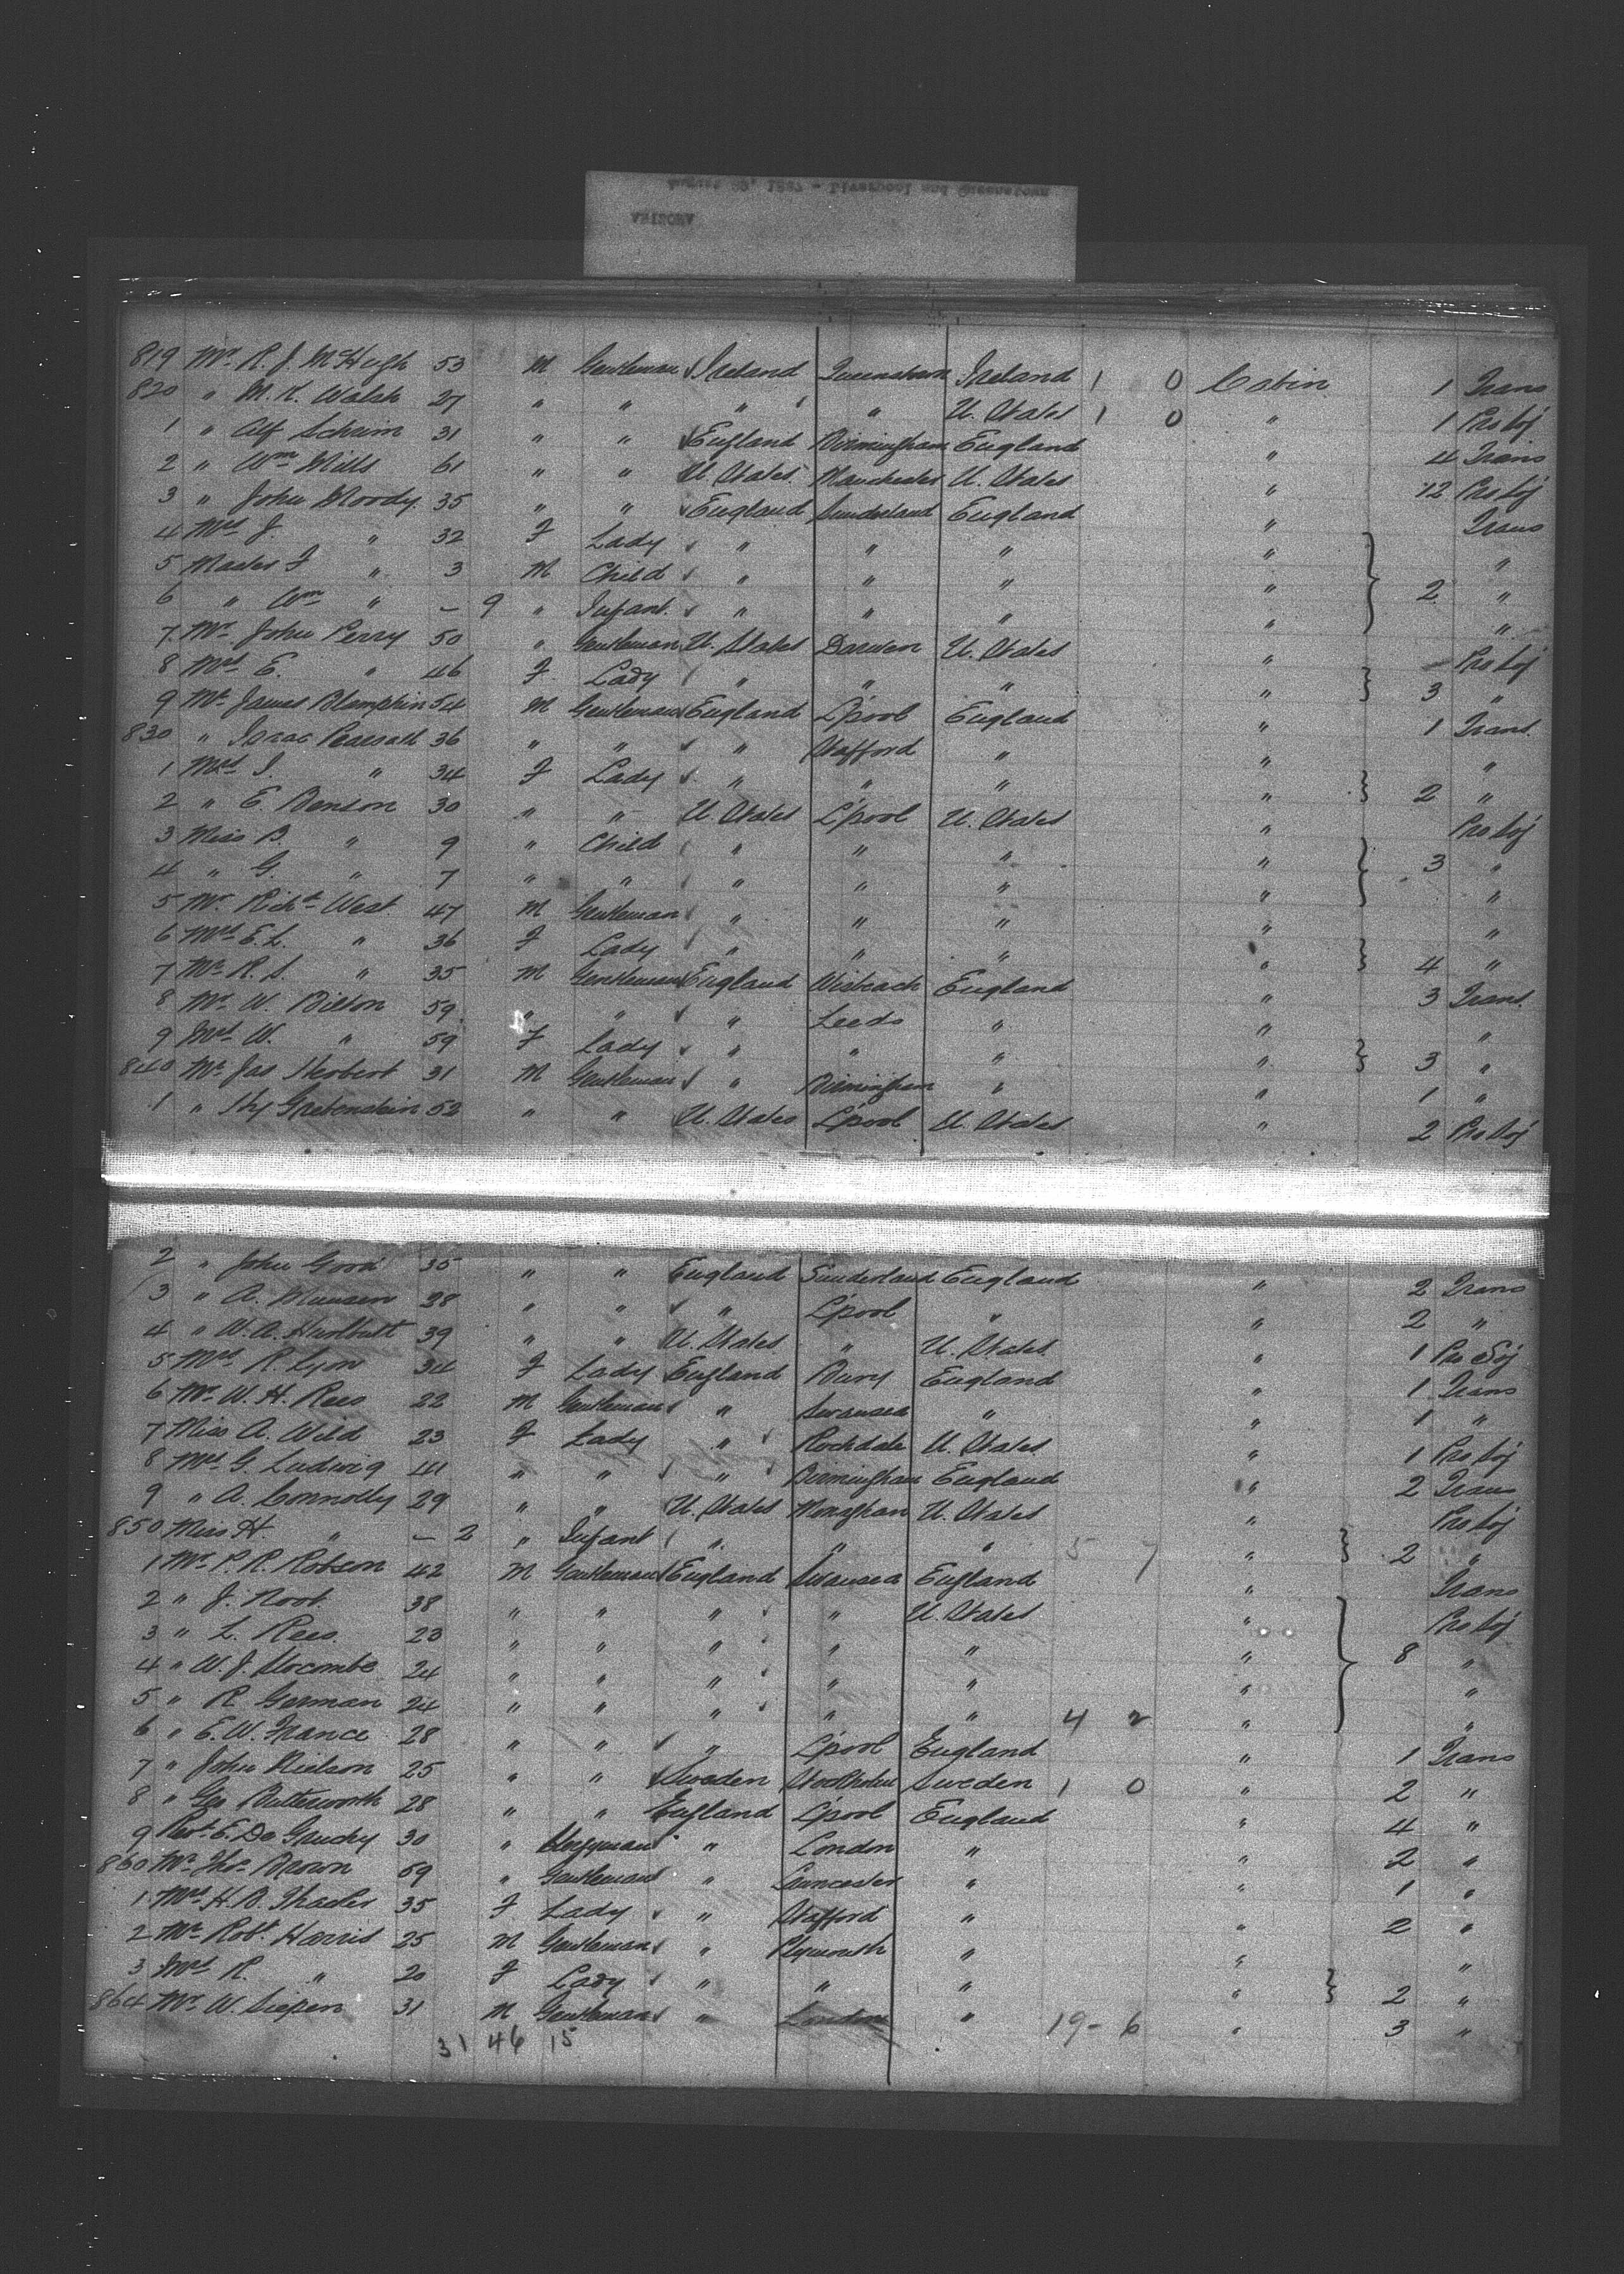 August 29, 1887 - Liverpool and Queenstown
ARIZONA
819 Mr. R. J. McHugh 53 M Gentleman Ireland Queenstown Ireland 1 0 Cabin 1 Trans
820 " M. K. Walsh 27 " " " " U. States 1 0 " 1 Pro Soj
1 " Alf Schrim 31 " " England Birmingham England " 4 Trans
2 " Wm Mills 61 " " U. States Manchester U. States " 12 Pro Soj
3 " John Moody 35 " " England Sunderland England " Trans
4 Mrs J. " 32 F Lady " " " " "
5 Master J " 3 M Child " " " " 2 "
6 " Wm " - 9 " Infant " " " " "
7 Mr John Perry 50 " Gentleman U. States Darwen U. States " Pro Soj
8 Mrs E. " 46 F Lady " " " " 3 "
9 Mr James Blampkin 54 M Gentleman England L'pool England " 1 Trans
830 " Isaac Pearsall 36 " " " Stafford " " "
1 Mrs I. " 34 F Lady " " " " 2 "
2 " E. Benson 30 " " U. States L'pool U. States " Pro Soj
3 Miss B. " 9 " Child " " " " 3 "
4 " G. " 7 " " " " " " "
5 Mr. Richd West 47 M Gentleman " " " " "
6 Mrs E. L. " 36 F Lady " " " " 4 "
7 Mr R. S. " 35 M Gentleman England Wisbeach England " 3 Trans
8 Mr W. Bilton 59 " " " Leeds " " "
9 Mrs W. " 59 F Lady " " " " 3 "
840 Mr Jas Herbert 31 M Gentleman " Birmingham " " 1 "
1 " Hy Gretenstein 52 " " U. States L'pool U. States " 2 Pro Soj
2 " John Good 35 " " England Sunderland England " 2 Trans
3 " A. Munsen 28 " " " L'pool " " 2 "
4 " W. A. Hurlbutt 39 " " U. States " U. States " 1 Pro Soj
5 Mrs R. Lyon 34 F Lady England Bury England " 1 Trans
6 Mr W. H. Rees 22 M Gentleman " Swansea " " 1 "
7 Miss A. Wild 23 F Lady " Rochdale U. States " 1 Pro Soj
8 Mrs G. Ludwig 41 " " " Birmingham England " 2 Trans
9 " A. Connolly 29 " " U. States Monaghan U. States " Pro Soj
850 Miss H. " - 2 " Infant " " " 5 7 " 2 "
1 Mr. P. R. Robson 42 M Gentleman England Swansea England " Trans
2 " J. Root 38 " " " " U. States " Pro Soj
3 " L. Rees 23 " " " " " " 8 "
4 " W. J. Slocombe 24 " " " " " " "
5 " R German 24 " " " " " 4 2 " "
6 " E. W. France 28 " " " L'pool England " 1 Trans
7 " John Nielson 25 " " Sweden Stockholm Sweden 1 0 " 2 "
8 " Geo Butterworth 28 " " England L'pool England " 4 "
9 Revd. E. De Gruchy 30 " Clergyman " London " " 2 "
860 Mr Thos Brown 59 " Gentleman " Lancaster " " 1 "
1 Mrs H. B. 35 F Lady " Stafford " " 2 "
2 Mr Robt. Harris 25 M Gentleman " Plymouth " " "
3 Mrs R. " 20 F Lady " " " " 2 "
864 Mr. W. Siepen 31 M Gentleman " London " 19 - 6 " 3 "
31 46 15